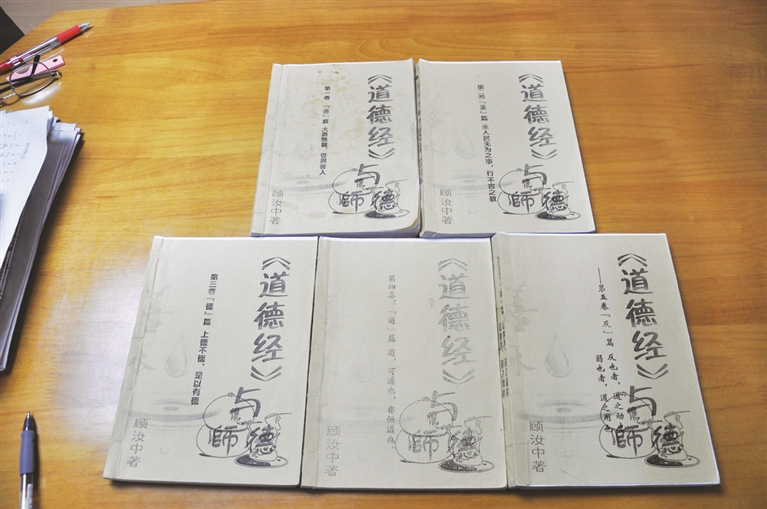 《道德经》
与
師德
第一卷『善』篇 大道無親，恒與善人
顾汝中著
《道德经》
与
師德
第二卷『圣』篇 圣人居无为之事，行不言之教
《道德经》
与
師德
第三卷『德』篇 上德不德，是以有德
顾汝中著
《道德经》
与
師德
第四卷：『道』篇 道，可道也，非恒道也
顾汝中著
《道德经》
与
師德
——第五卷『反』篇 反也者，道之动也
弱也者，道之用也
顾汝中著